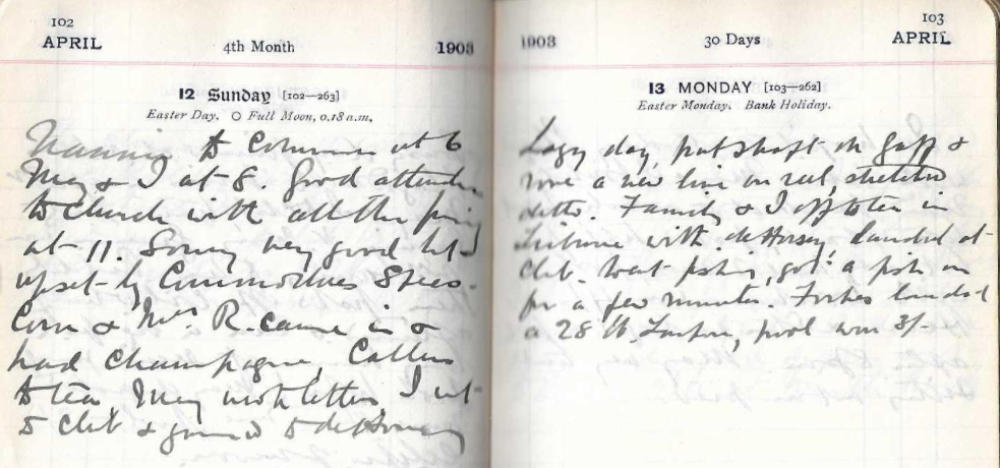 102
APRIL
4th Month
1903
12 Sunday [102—263]
Easter Day. O Full Moon, 0.18 a.m.
to Commun at 6
May & I at 8. Good
to church with all the
at 11. very good but I
upset by Commodores
Corn & Mrs R. came in &
had Champagne,
to tea May wrote letters I
to club &
103
APRIL
30 Days
1903
13 MONDAY [103—262]
Easter Monday. Bank Holiday.
Lazy day, put shaft on gaff &
a new line on reel, stretched
ditto. Family & I off to tea in
with de Horsey landed at
Club. Went fishing, got a fish on
for a few minutes. Forbes landed
a 28 lb. Tarpon, pool won 3/-